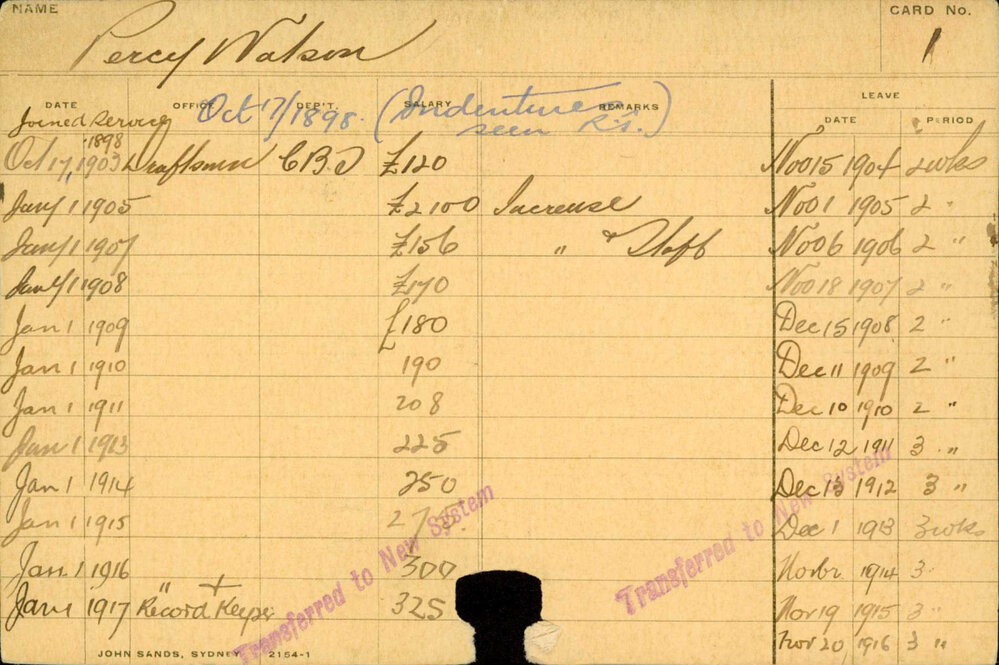 NAME CARD No.
Percy Watson 1
DATE OFFICE DEP'T. SALARY REMARKS LEAVE
DATE PERIOD
Joined Service Oct 17/1898. (Indenture seen R.S.)
1898
Oct 17, 1903 Draftsman CBD £120 Nov 15 1904 2 wks
Jan/1 1905 £2 100 Increase Nov 1 1905 2 "
Jan/1 1907 £156 " & Staff Nov 6 1906 2 "
Jan/1 1908 £170 Nov 18 1907 2 "
Jan 1 1909 £180 Dec 15 1908 2 "
Jan 1 1910 190 Dec 11 1909 2 "
Jan 1 1911 208 Dec 10 1910 2 "
Jan 1 1913 225 Dec 12 1911 3 "
Jan 1 1914 250 Dec 13 1912 3 "
Jan 1 1915 275 Dec 1 1913 3 wks
Jan. 1 1916 300 Novbr. 1914 3 "
Jan 1 1917 " + Record Keeper 325 Nov 19 1915 3 "
Nov 20 1916 3 "
Transferred to New System
Transferred to New System
JOHN SANDS, SYDNEY 2154-1